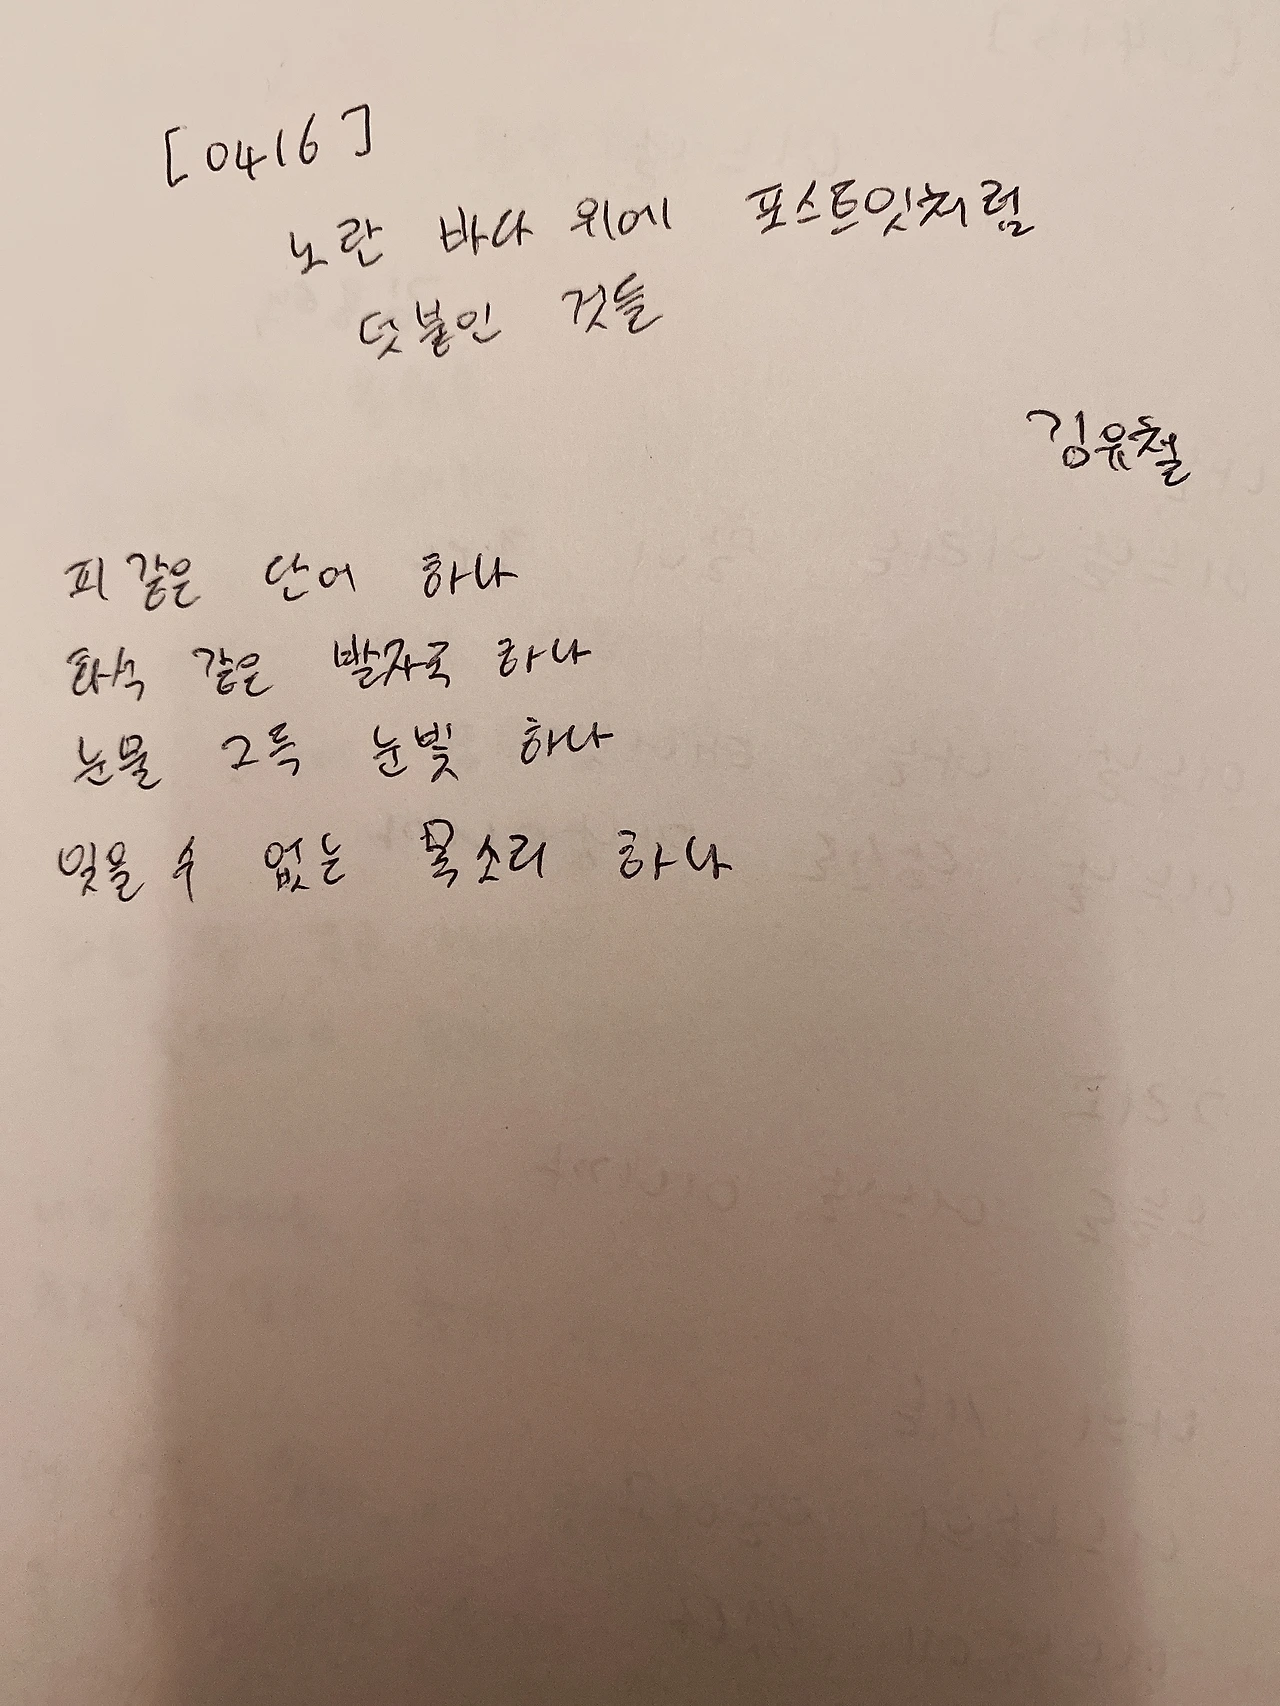 [0416]
노란 바다 위에 포스트잇처럼
덧붙인 것들
김유철
피 같은 단어 하나
화석 같은 발자국 하나
눈물 그득 눈빛 하나
잊을 수 없는 목소리 하나